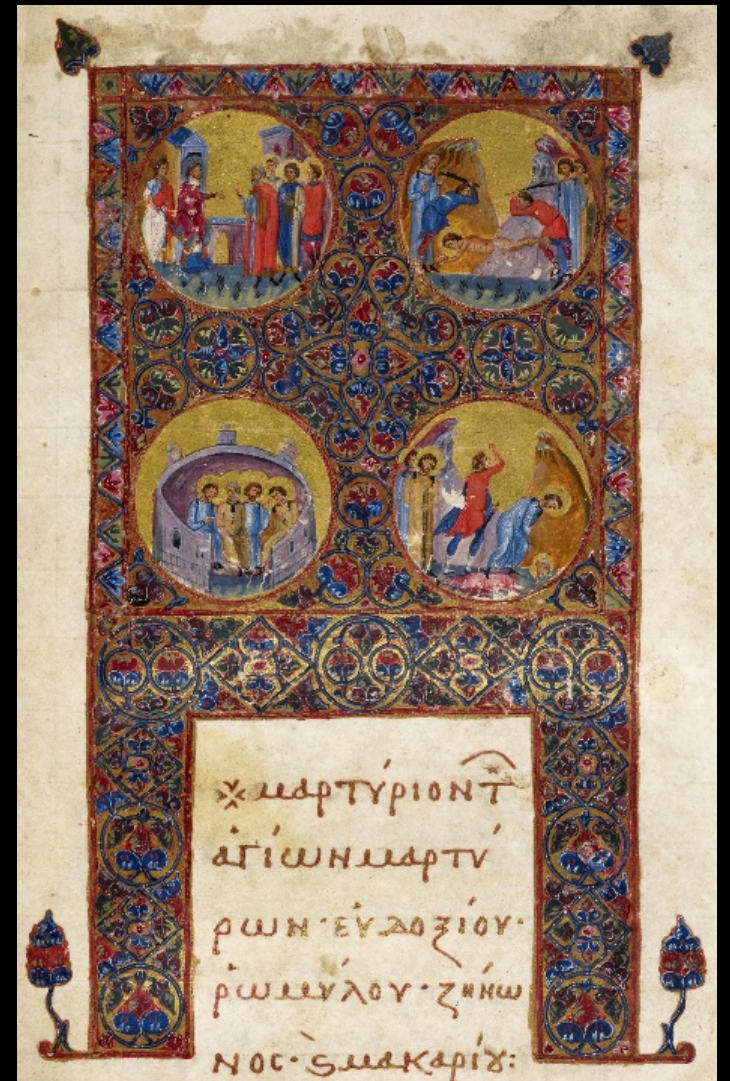 ※ μαρτύριον τ῀
ἁγίων μαρτύ
ρων· εὐδοξίου·
ῥωμύλου· ζήνω
νος· ϛ μακαρίου: